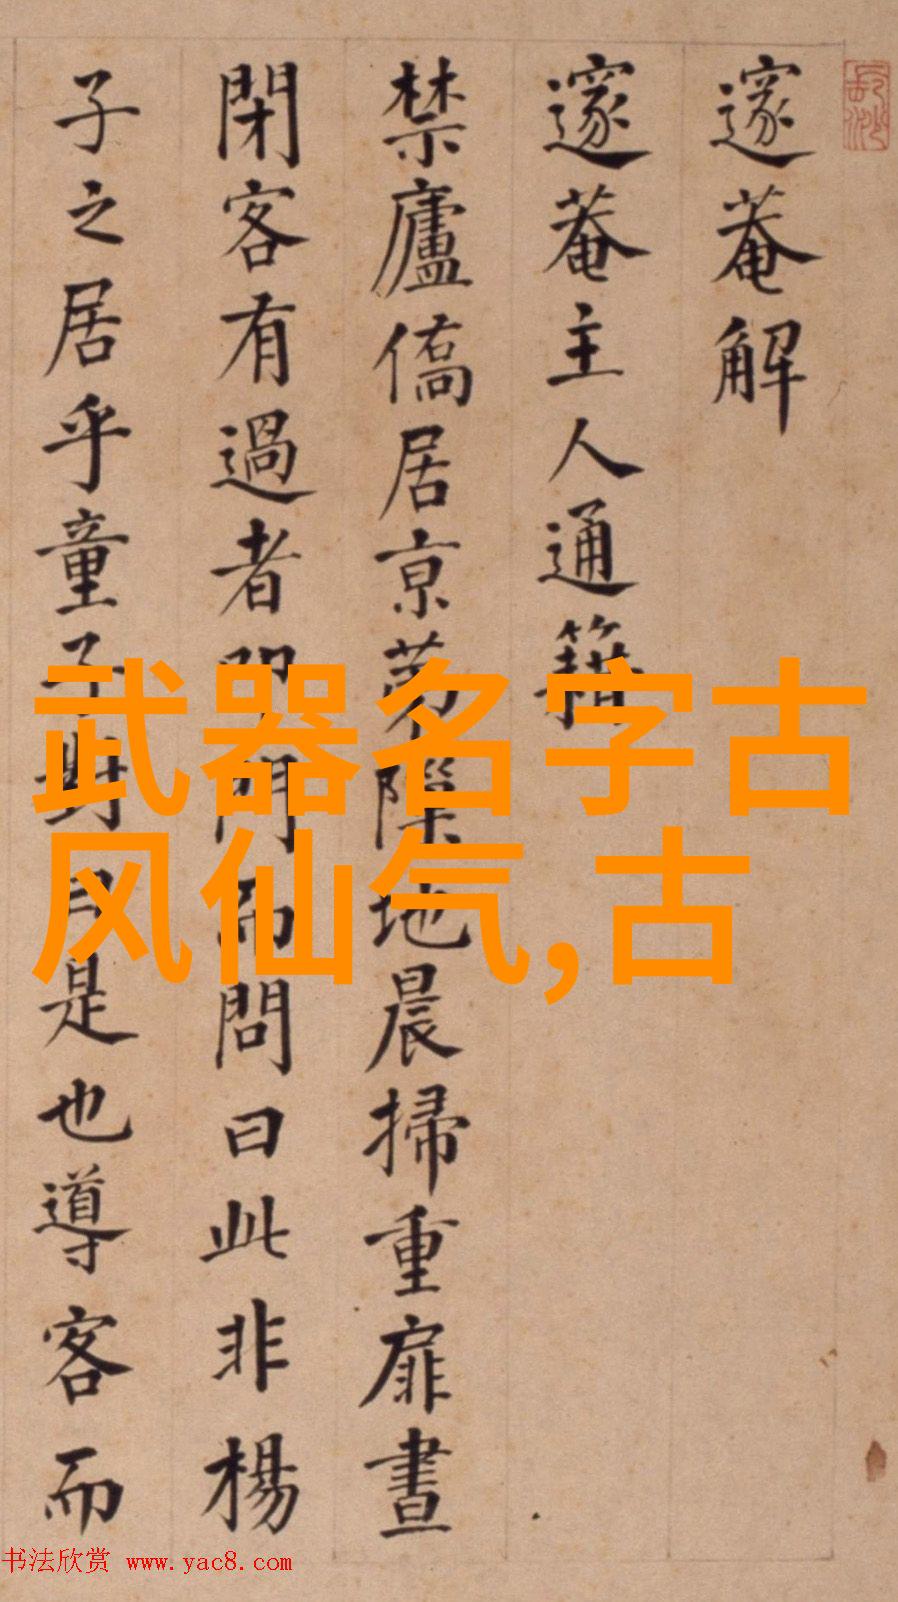 邃菴解
邃菴主人通籍
禁廬僑居京苐陞地晨掃重扉晝
閉客有過者叩門而問曰此非楊
子之居乎童子對曰是也導客而
武器名字古
风仙气,古
书法欣赏 www.yac8.com